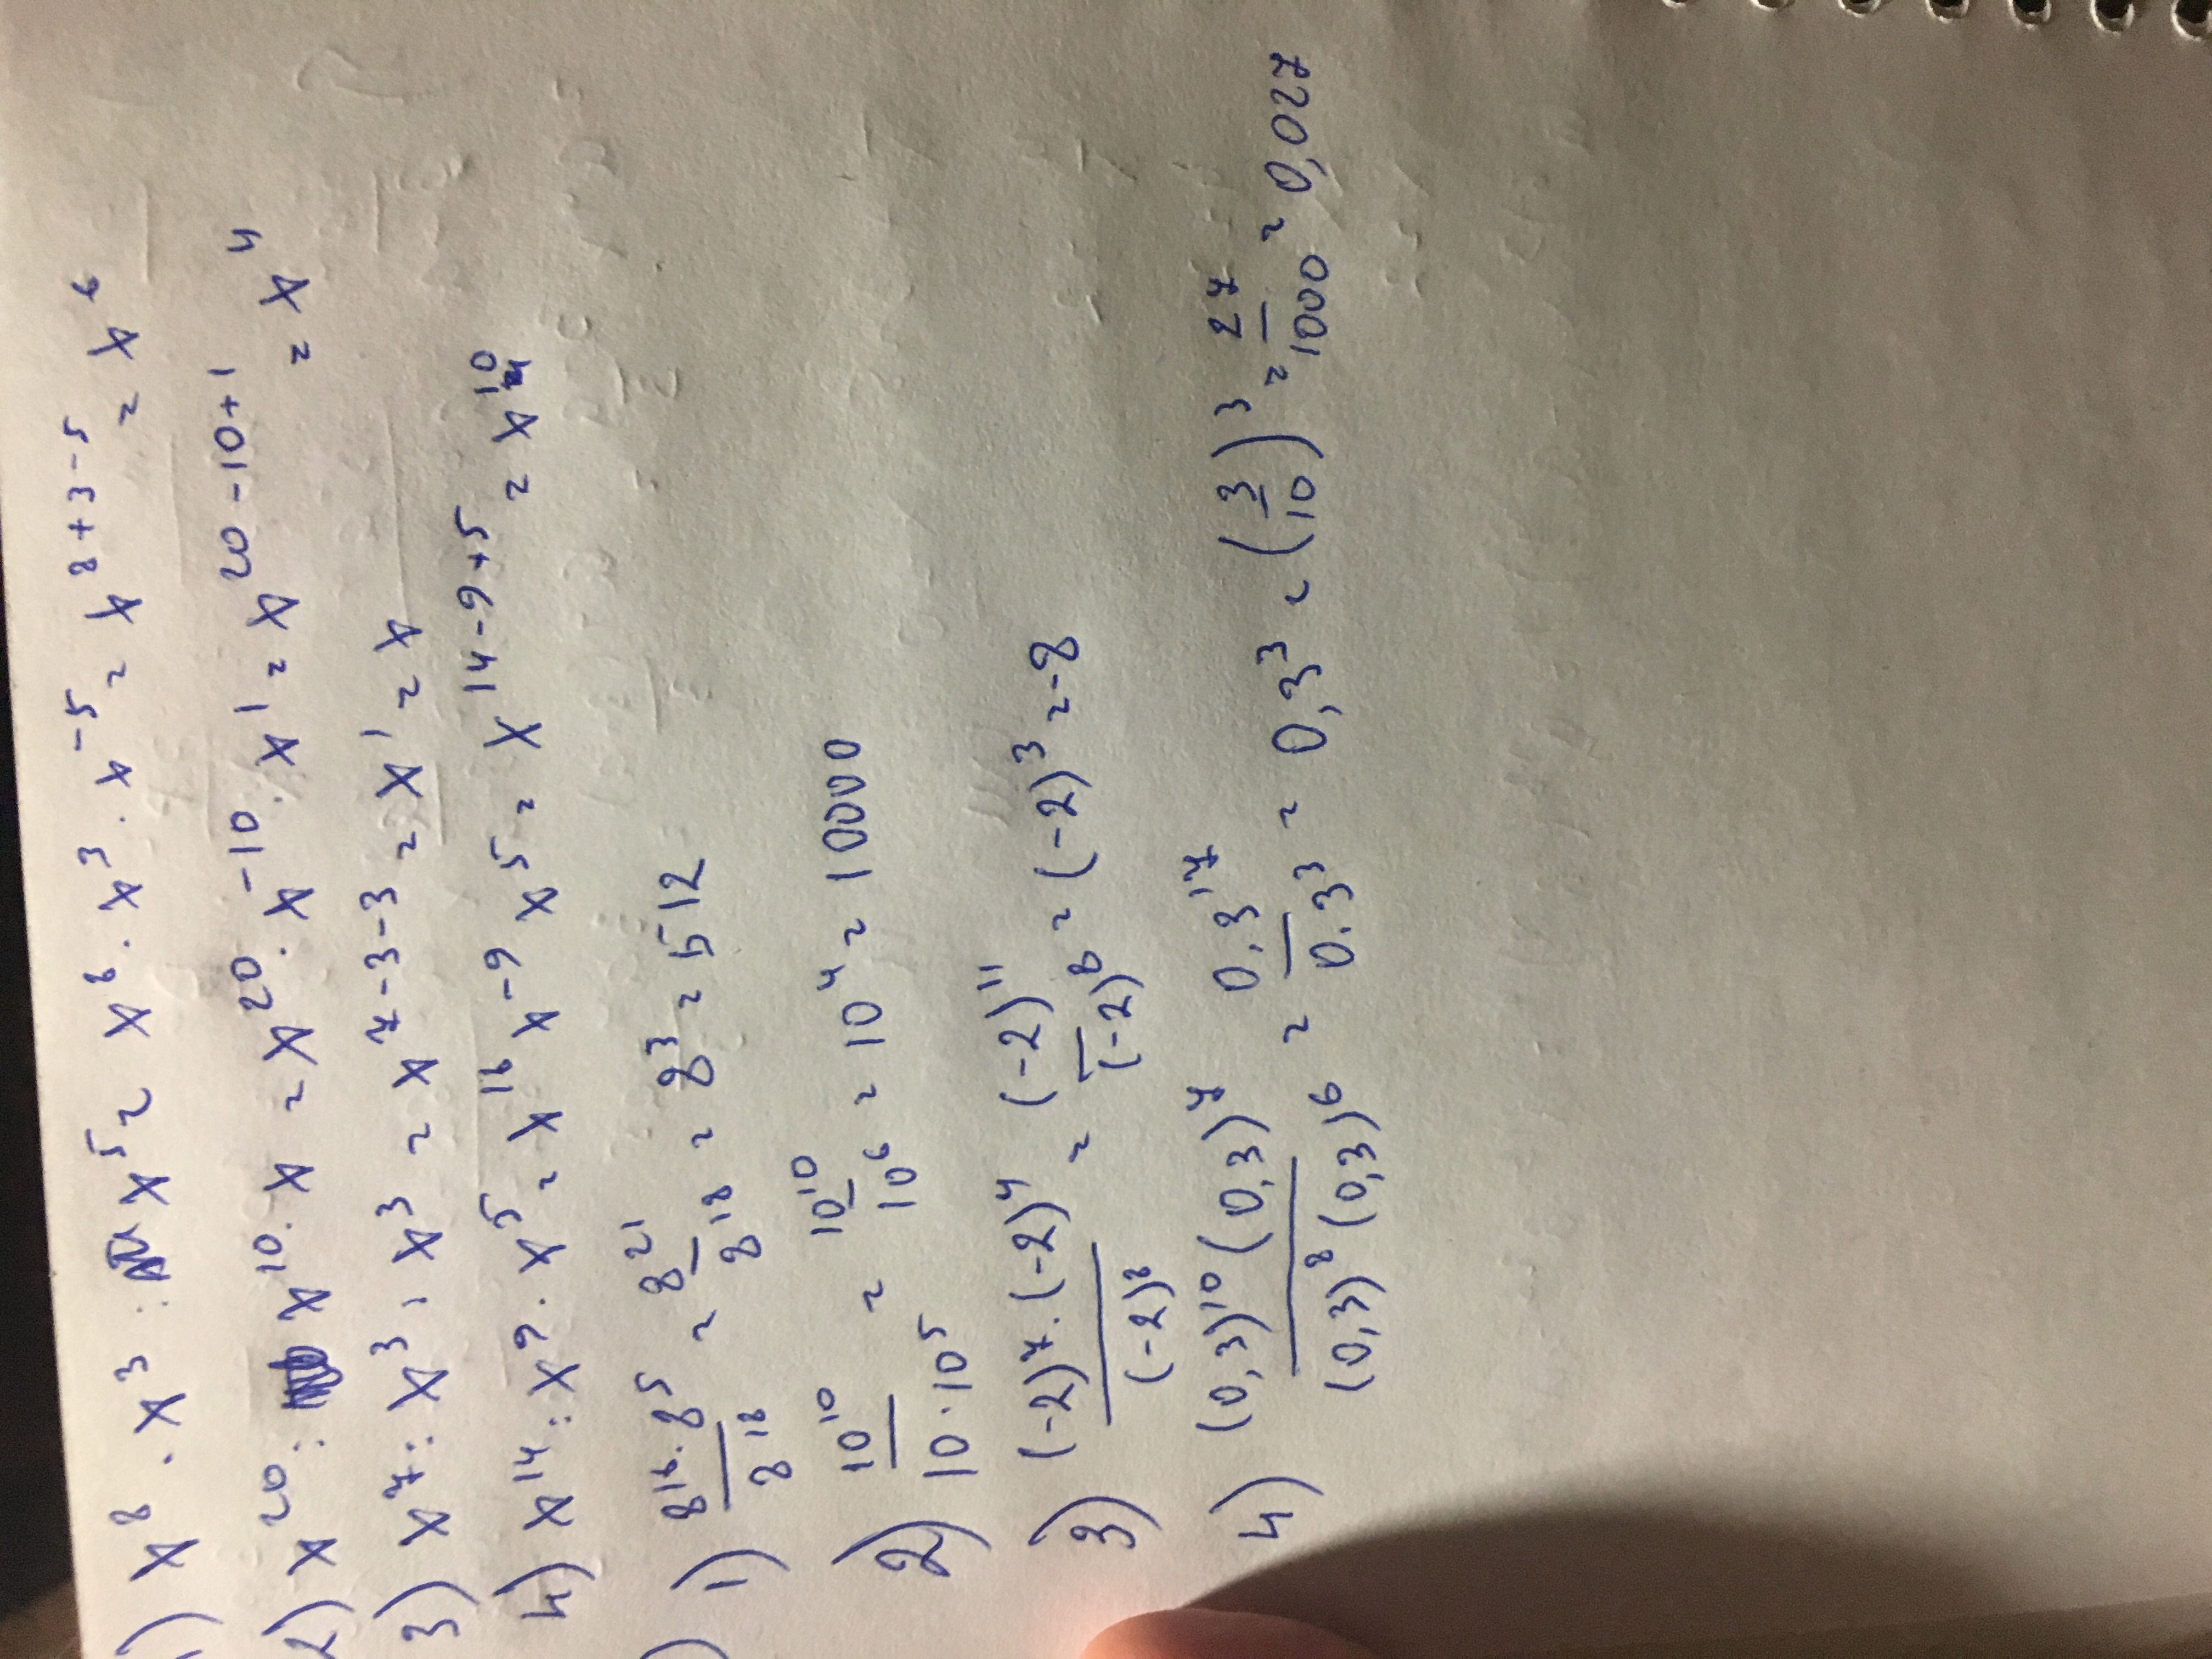 1) x⁸ · x³ : x⁵ = x⁸ · x³ · x⁻⁵ = x⁸⁺³⁻⁵ = x⁶
2) x²⁰ : x¹⁰ · x = x²⁰ · x⁻¹⁰ · x¹ = x²⁰⁻¹⁰⁺¹ = x⁴
3) x⁷ : x³ : x³ = x⁷⁻³⁻³ = x¹ = x
4) x¹⁴ : x⁹ · x⁵ = x¹⁶ x⁻⁹ x⁵ = x¹⁴⁻⁹⁺⁵ = x¹⁰
) 1) 8¹⁶ · 8⁵ / 8¹⁸ = 8²¹ / 8¹⁸ = 8³ = 512
2) 10¹⁰ / 10 · 10⁵ = 10¹⁰ / 10⁶ = 10⁴ = 10000
3) (-2)⁷ · (-2)⁴ / (-2)⁸ = (-2)¹¹ / (-2)⁸ = (-2)³ = -8
4) (0,3)¹⁰ (0,3)⁷ / (0,3)⁸ (0,3)⁶ = 0,3¹⁷ / 0,3³ = 0,3³ = (3/10)³ = 27/1000 = 0,027